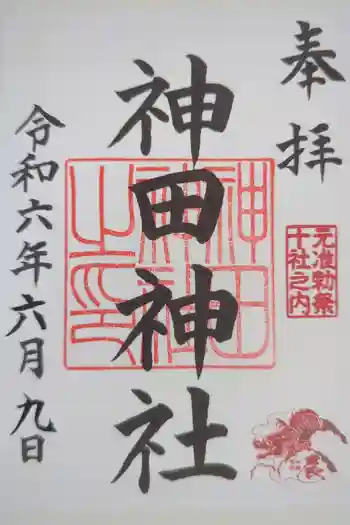 奉拝
元准勅祭
十社之内
神田神社
神田神社之印
令和六年六月九日